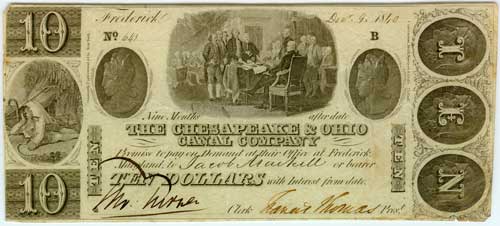 10
Frederick Dec. 9. 1840
No 641 B
Nine Months after date
THE CHESAPEAKE & OHIO
CANAL COMPANY
Promise to pay on Demand at their Office at Frederick
Maryland, to Jacob Markell or bearer
TEN DOLLARS with Interest from date.
Clerk Francis Thomas Prest.
10
TEN
TEN
T
E
N